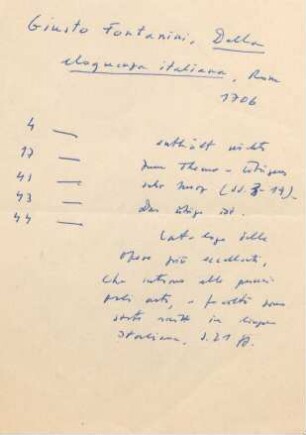 Giusto Fontanini, Della
eloquenza italiana, Rom
1706
4 —
17 —
41 —
43 —
44 —
enthält nichts
zum Thema – übrigens
sehr kurz (SS. 3-19).
Das übrige ist
Catalogo delle
opere più eccellenti,
che intorno alle
arti, e facoltà sono
state scritte in lingua
italiana, S. 21 ff.